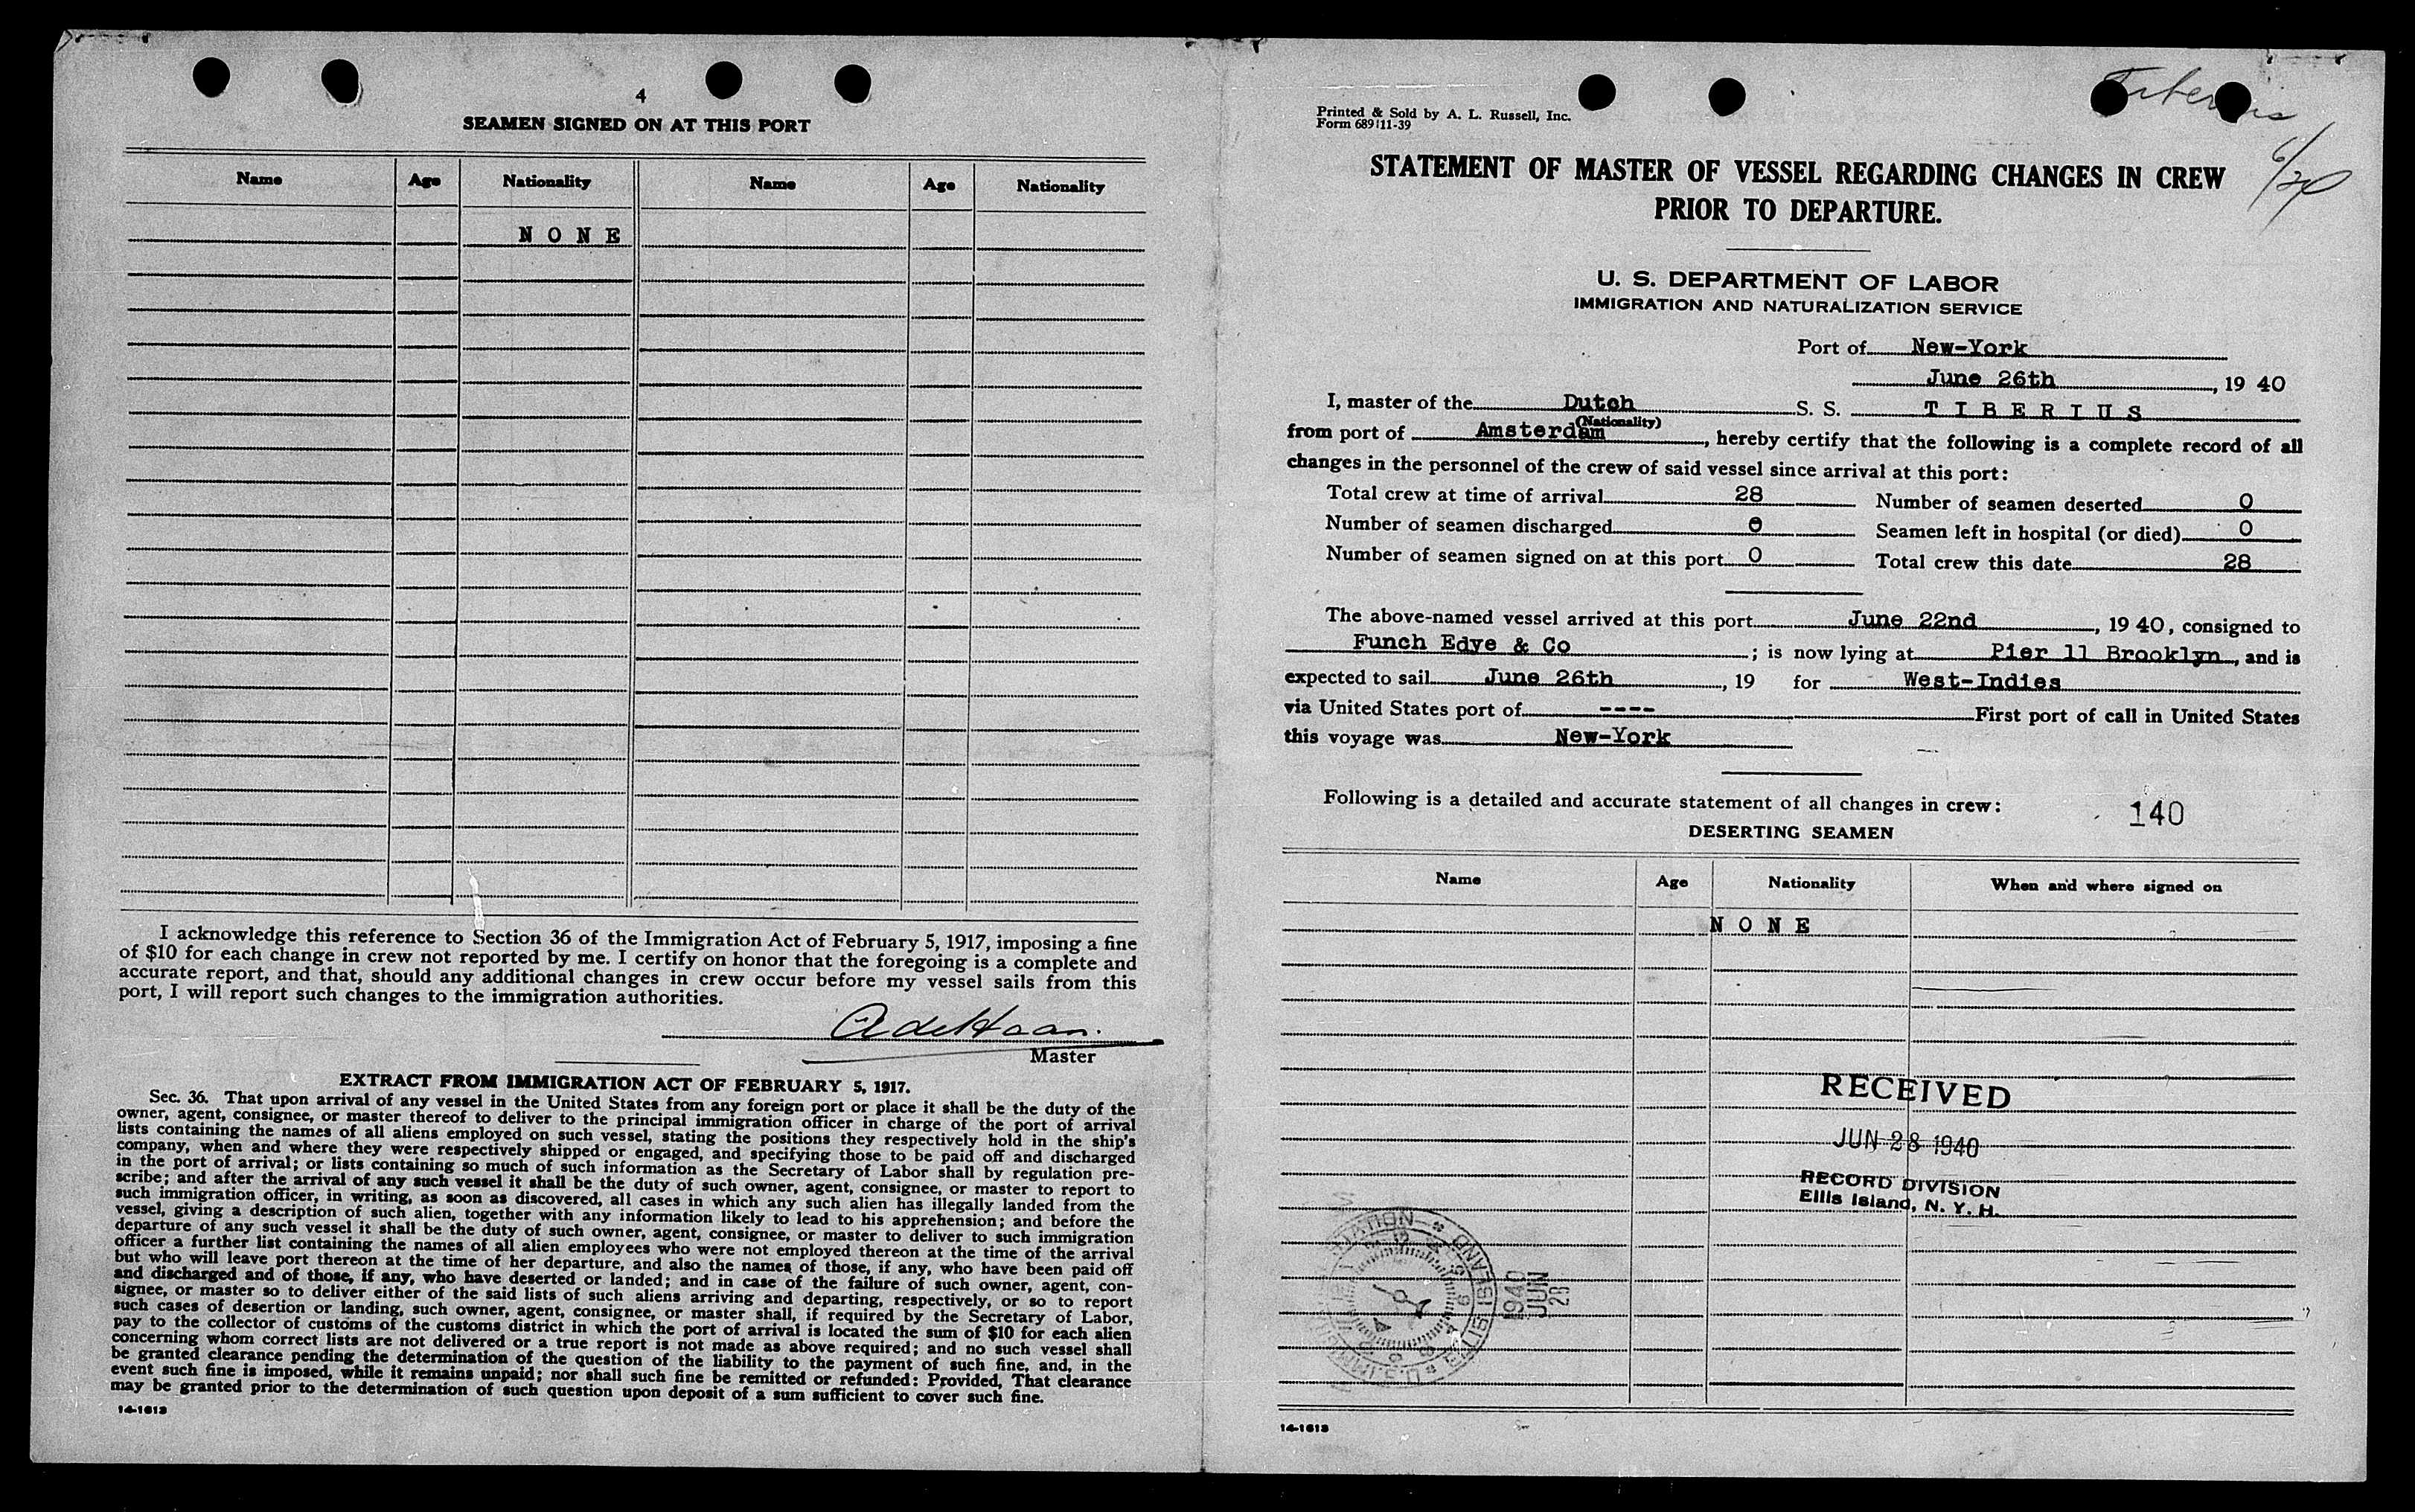 4
SEAMEN SIGNED ON AT THIS PORT
Name Age Nationality Name Age Nationality
N O N E
I acknowledge this reference to Section 36 of the Immigration Act of February 5, 1917, imposing a fine
of $10 for each change in crew not reported by me. I certify on honor that the foregoing is a complete and
accurate report, and that, should any additional changes in crew occur before my vessel sails from this
port, I will report such changes to the immigration authorities.
A de Haan.
Master
EXTRACT FROM IMMIGRATION ACT OF FEBRUARY 5, 1917.
Sec. 36. That upon arrival of any vessel in the United States from any foreign port or place it shall be the duty of the
owner, agent, consignee, or master thereof to deliver to the principal immigration officer in charge of the port of arrival
lists containing the names of all aliens employed on such vessel, stating the positions they respectively hold in the ship's
company, when and where they were respectively shipped or engaged, and specifying those to be paid off and discharged
in the port of arrival; or lists containing so much of such information as the Secretary of Labor shall by regulation pre-
scribe; and after the arrival of any such vessel it shall be the duty of such owner, agent, consignee, or master to report to
such immigration officer, in writing, as soon as discovered, all cases in which any such alien has illegally landed from the
vessel, giving a description of such alien, together with any information likely to lead to his apprehension; and before the
departure of any such vessel it shall be the duty of such owner, agent, consignee, or master to deliver to such immigration
officer a further list containing the names of all alien employees who were not employed thereon at the time of the arrival
but who will leave port thereon at the time of her departure, and also the names of those, if any, who have been paid off
and discharged and of those, if any, who have deserted or landed; and in case of the failure of such owner, agent, con-
signee, or master so to deliver either of the said lists of such aliens arriving and departing, respectively, or so to report
such cases of desertion or landing, such owner, agent, consignee, or master shall, if required by the Secretary of Labor,
pay to the collector of customs of the customs district in which the port of arrival is located the sum of $10 for each alien
concerning whom correct lists are not delivered or a true report is not made as above required; and no such vessel shall
be granted clearance pending the determination of the question of the liability to the payment of such fine, and, in the
event such fine is imposed, while it remains unpaid; nor shall such fine be remitted or refunded: Provided, That clearance
may be granted prior to the determination of such question upon deposit of a sum sufficient to cover such fine.
14-1613
Printed & Sold by A. L. Russell, Inc.
Form 689 11-39
STATEMENT OF MASTER OF VESSEL REGARDING CHANGES IN CREW
PRIOR TO DEPARTURE.
U. S. DEPARTMENT OF LABOR
IMMIGRATION AND NATURALIZATION SERVICE
Port of New-York
June 26th, 19 40
I, master of the Dutch S. S. T I B E R I U S
(Nationality)
from port of Amsterdam, hereby certify that the following is a complete record of all
changes in the personnel of the crew of said vessel since arrival at this port:
Total crew at time of arrival 28 Number of seamen deserted 0
Number of seamen discharged 0 Seamen left in hospital (or died) 0
Number of seamen signed on at this port 0 Total crew this date 28
The above-named vessel arrived at this port June 22nd, 19 40, consigned to
Funch Edye & Co; is now lying at Pier 11 Brooklyn, and is
expected to sail June 26th, 19 for West-Indies
via United States port of ---- First port of call in United States
this voyage was New-York
Following is a detailed and accurate statement of all changes in crew: 140
DESERTING SEAMEN
Name Age Nationality When and where signed on
N O N E
RECEIVED
JUN 28 1940
RECORD DIVISION
Ellis Island, N. Y. H.
ELLIS ISLAND
1940
JUN
28
14-1613